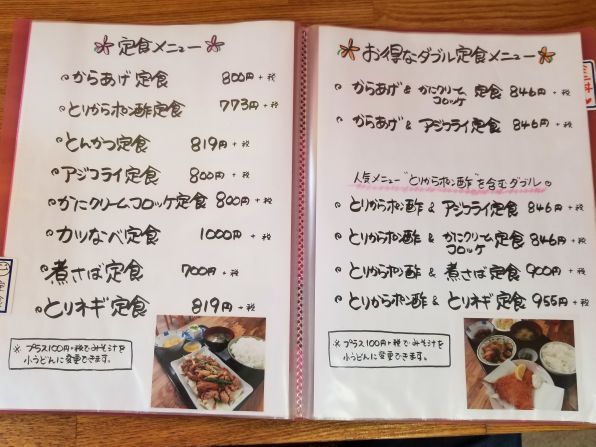 定食メニュー
からあげ定食 800円+税
とりからポン酢定食 773円+税
とんかつ定食 819円+税
アジフライ定食 800円+税
かにクリームコロッケ定食 800円+税
カツなべ定食 1000円+税
煮さば定食 700円+税
とりネギ定食 819円+税
※プラス100円+税でみそ汁を
小うどんに変更できます。
お得なダブル定食メニュー
からあげ&かにクリーム 定食 846円+税
コロッケ
からあげ&アジフライ定食 846円+税
人気メニュー"とりからポン酢"を含むダブル
とりからポン酢&アジフライ定食 846円+税
とりからポン酢&かにクリーム 定食 846円+税
コロッケ
とりからポン酢&煮さば定食 900円+税
とりからポン酢&とりネギ定食 955円+税
※プラス100円+税でみそ汁を
小うどんに変更できます。